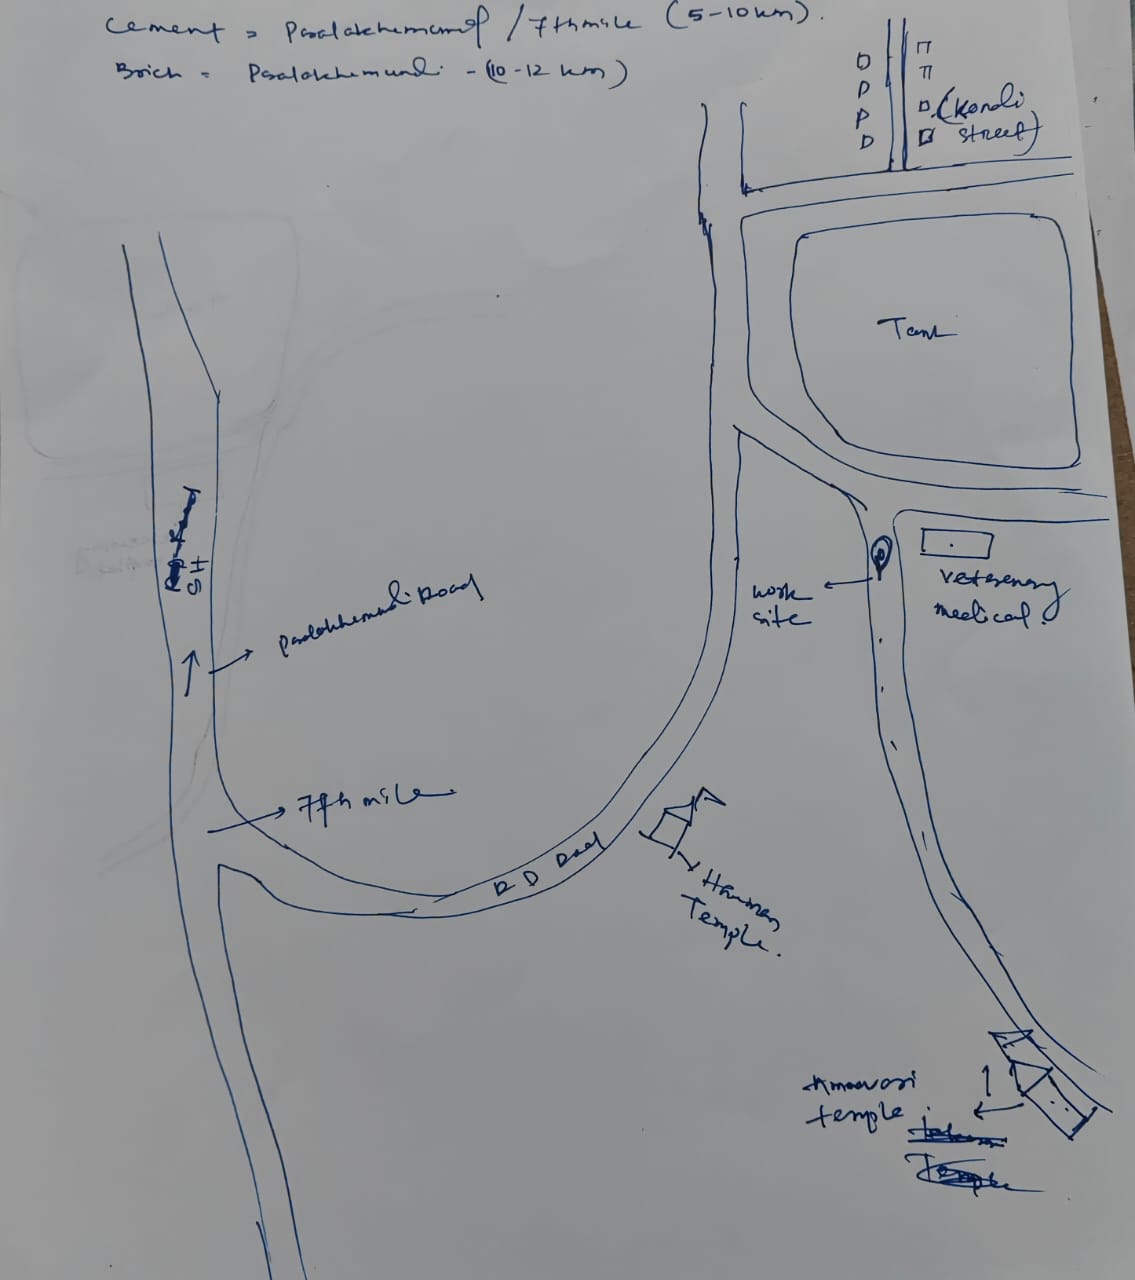 Cement = Paralakhemundi / 7th mile (5-10 km).
Brick = Paralakhemundi - (10-12 km)
(Kandi
street)
Tank
SH
Paralakhemundi Road
work
site
veterenary
medical.
7th mile
R D Road
Hanuman
Temple.
Ammavari
temple.
Temple